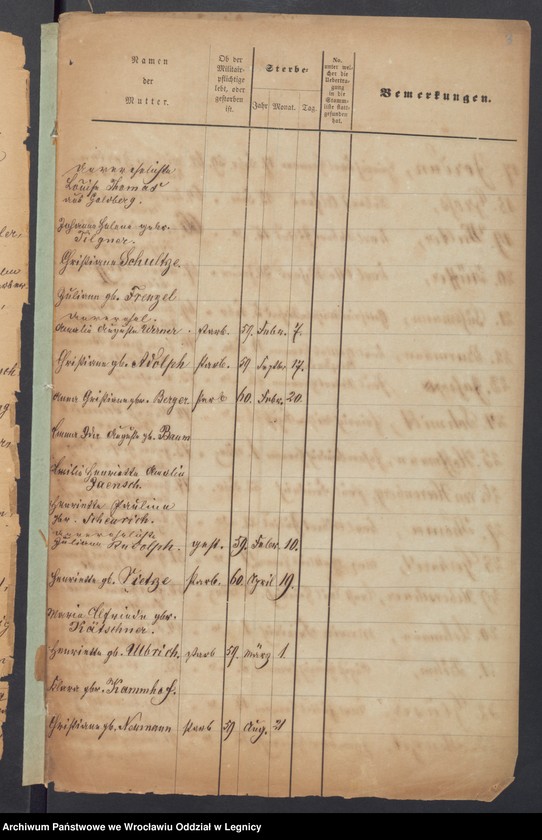 Namen
der
Mutter.
Ob der
Militair-
pflichtige
lebt, oder
gestorben
ist.
Sterbe-
Jahr Monat. Tag.
No.
unter wel-
cher die
Uebertra-
gung
in die
Stamm-
liste statt-
gefunden
hat.
Bemerkungen.
unverehelichte
Louise Thomas
aus Goldberg.
Johanne Helene gebor.
Tilgner.
Christiane Schultze.
Juliane gb. Frenzel
unverehel.
Amalie Auguste Werner. starb. 59. Febr. 7.
Christiane gb. Adolph starb. 59 Septbr. 17.
Anna Christiane gbr. Berger. starb 60. Febr. 20.
Emma Auguste gb. Baum
Emilie Henriette Amalie
Jaensch.
Henriette Pauline
gbr. Scheurich.
unverehelichte
Juliane Rudolph. gest. 59. Febr. 10.
Henriette gb. Vietze starb. 60. April 19.
Marie Elfriede gbr.
Kätschner.
Henriette gb. Ulbrich. starb 59. März 1.
Klara gbr. Kammhof.
Christiane gb. Neumann starb 59 Aug. 21
Archiwum Państwowe we Wrocławiu Oddział w Legnicy